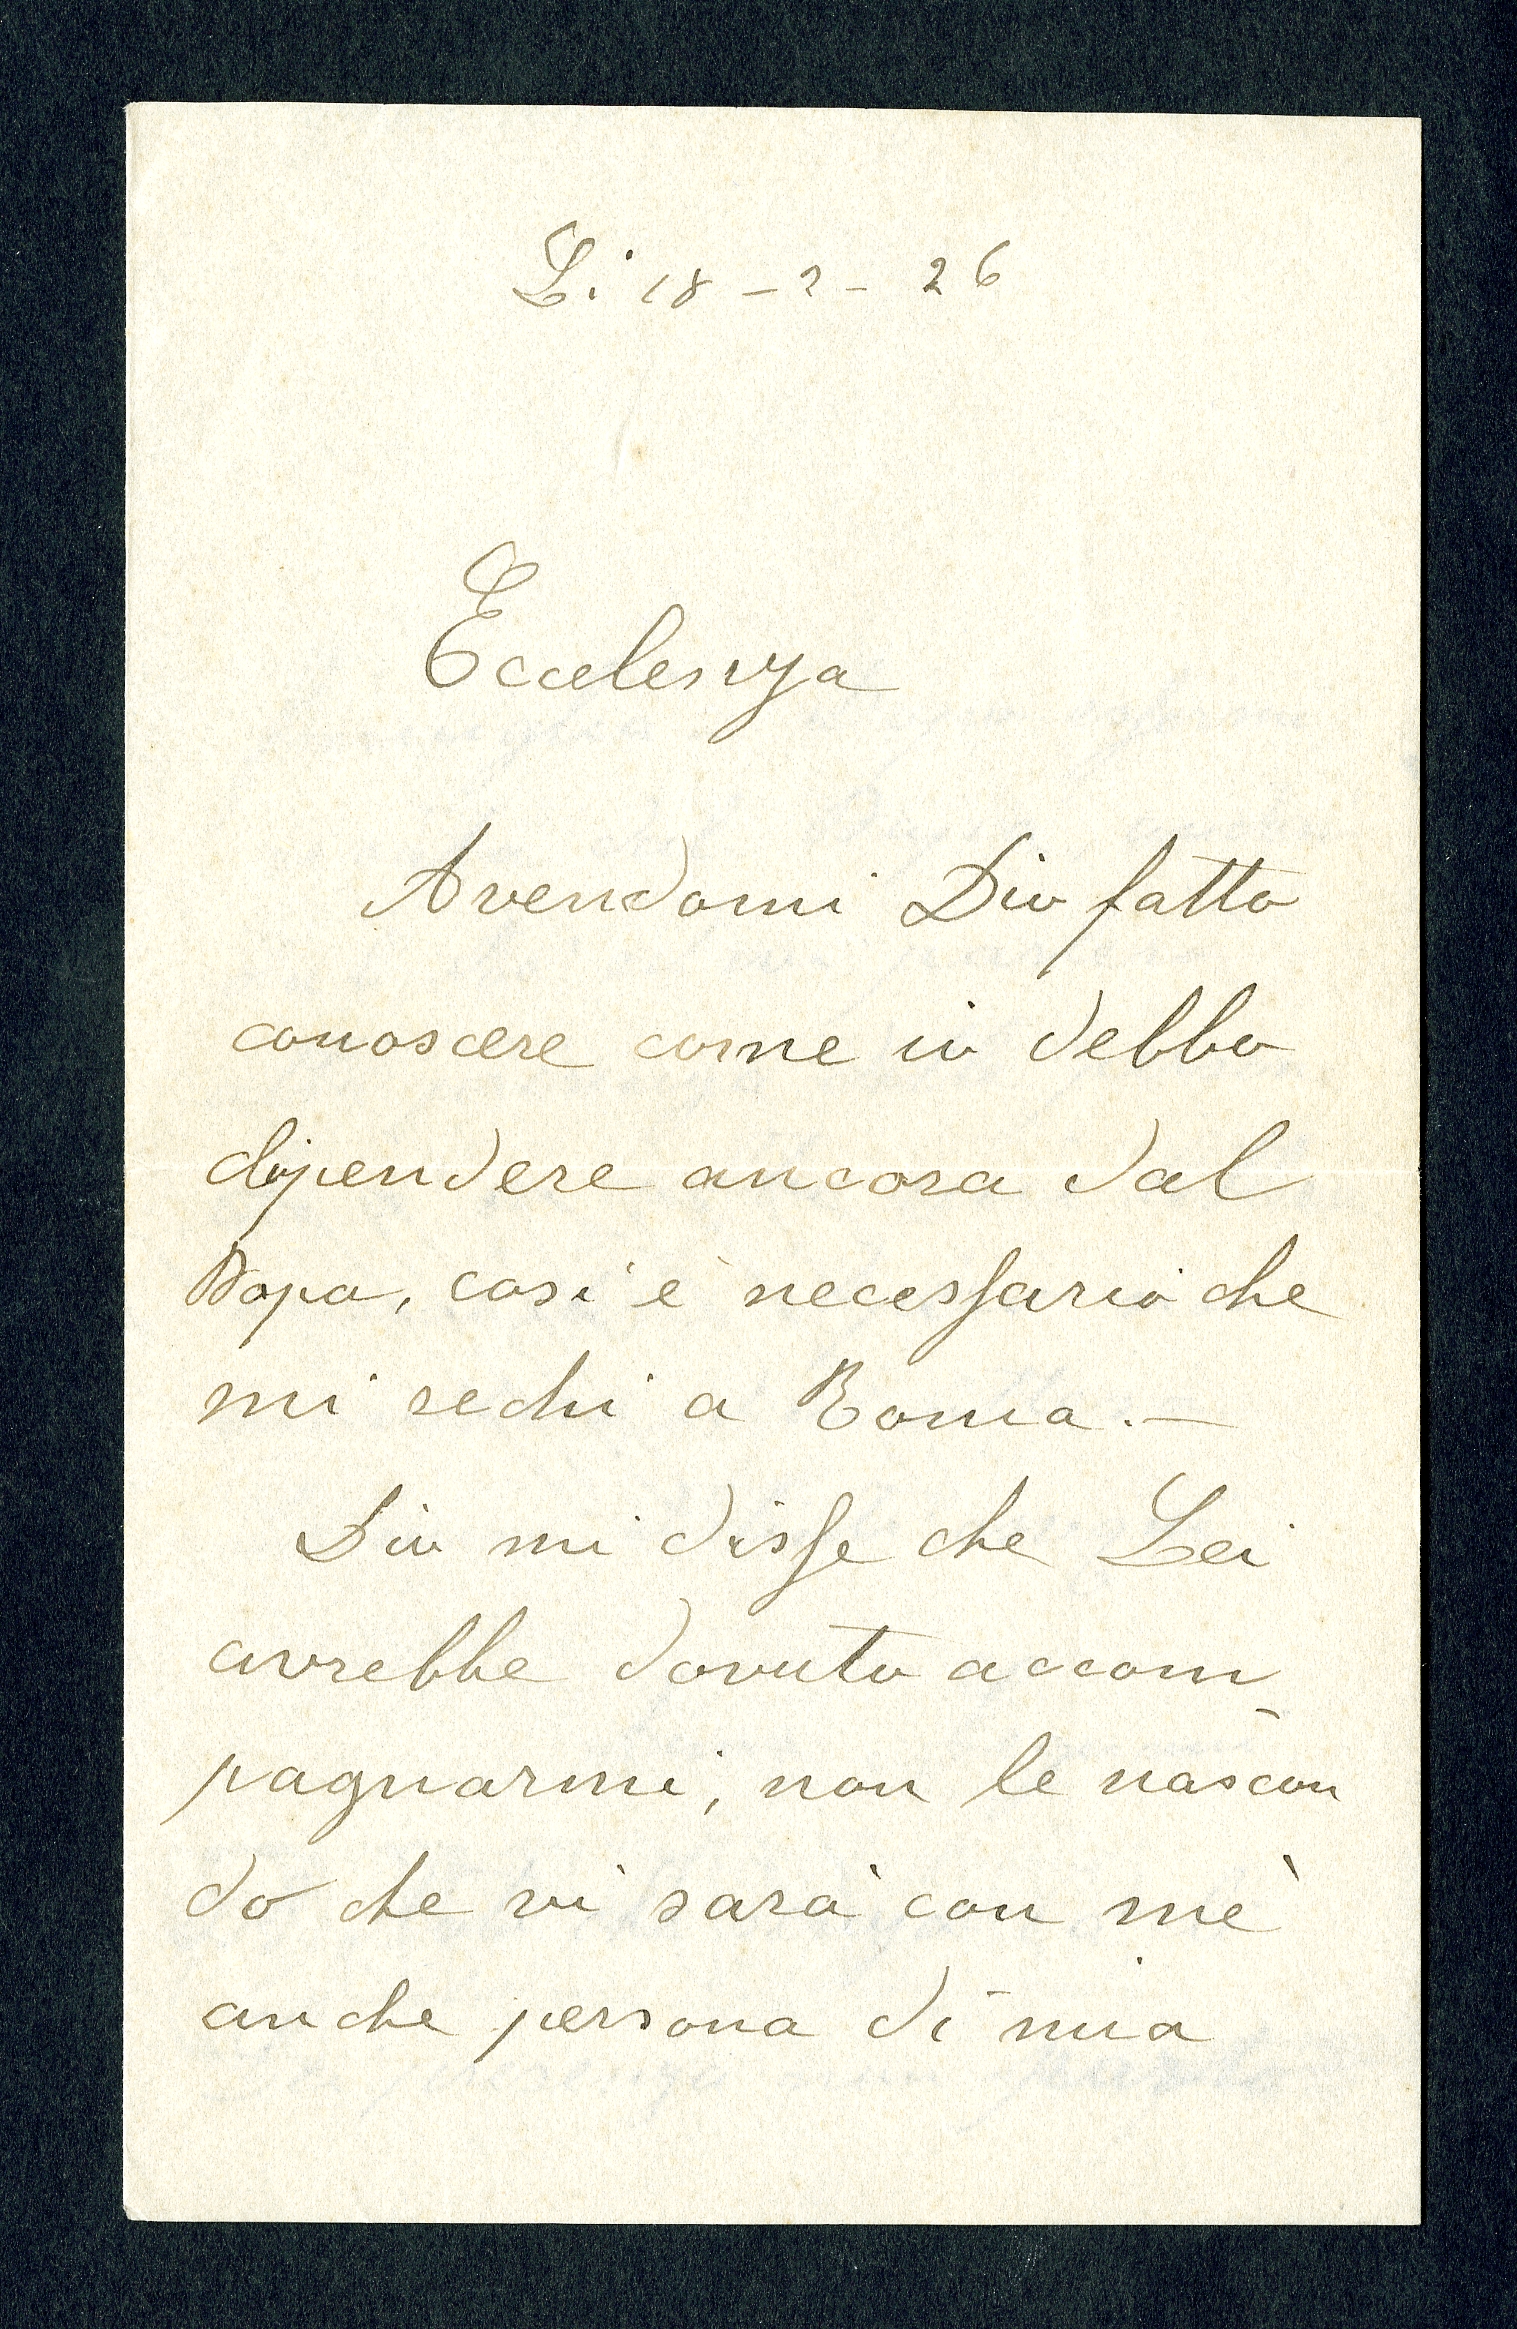 Li 18 - 2 - 26
Eccelenza
Avendomi Dio fatto
conoscere come io debbo
dipendere ancora dal
Papa, cosi è necessario che
mi rechi a Roma. —
Dio mi disse che Lei
avrebbe dovuto accom-
pagnarmi, non le nascon
do che vi sarà con mè
anche persona di mia